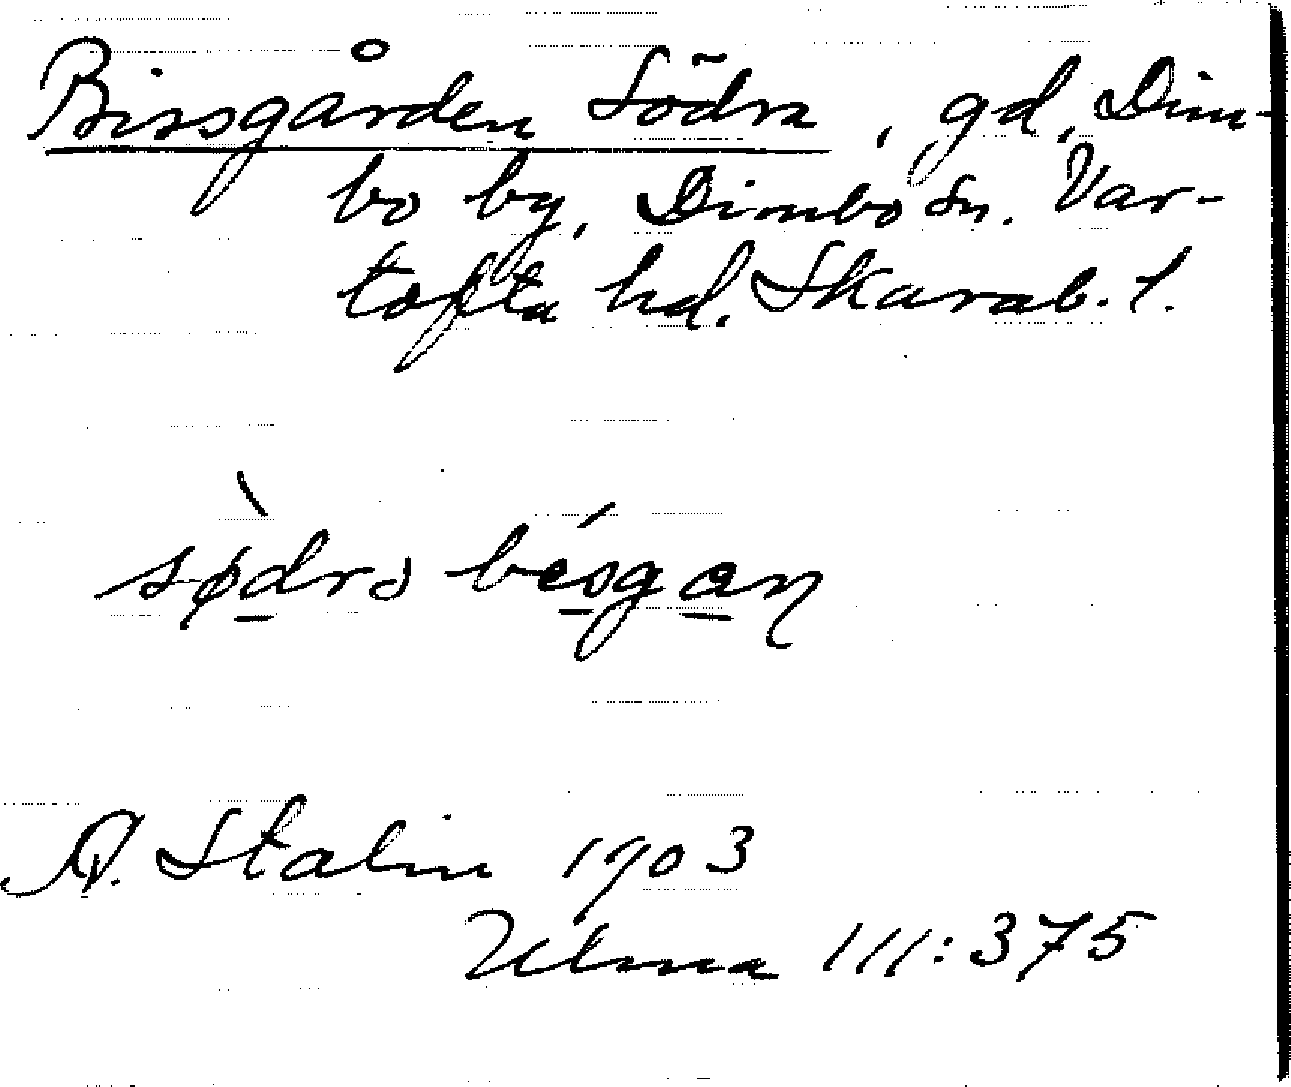 Bissgården Södra, gd, Dim-
bo by, Dimbo sn. Var-
tofta hd. Skarab. l.
södra
A. Stalin 1903
Ulma 111:375